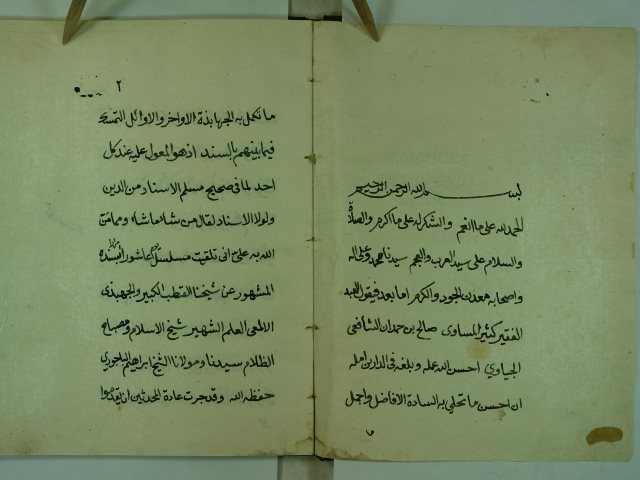 بسم الله الرحمن الرحيم
الحمد لله على ما انعم والشكر له على ما اكرم والصلاة
والسلام على سيد العرب والعجم سيدنا محمد وعلى اله
واصحابه معدن الجود والكرم اما بعد فيقول العبد
الفقير كثير المساوى صالح بن حمدان الشافعى
احسن الله عمله وبلغه فى الدارين امله
ان احسن ما تحلى به السادة الافاضل واجمل
٢
ما تكمل به الجهابذة الاواخر والاوائل التمسك
فيما بينهم بالسند اذ هو المعول عليه عند كل
احد لما فى صحيح مسلم الاسناد من الدين
ولولا الاسناد لقال من شاء ما شاء ومما من
الله به على انى تلقيت مسلسل عاشوراء بسنده
المشهور عن شيخنا القطب الكبير والجهبذى
الالمعى العلم الشهير شيخ الاسلام ومصباح
الظلام سيدنا ومولانا الشيخ ابراهيم الباجورى
حفظه الله وقد جرت عادة المحدثين ان